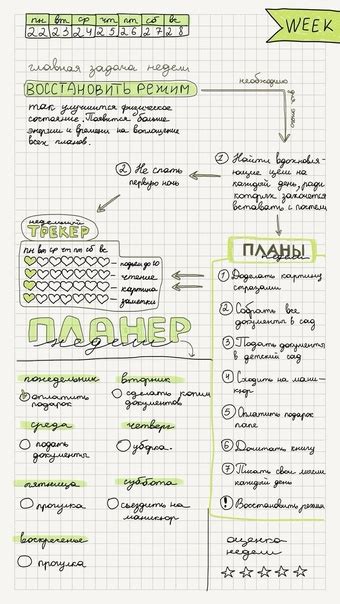 WEEK
пн вт ср чт пт сб вс
22 23 24 25 26 27 28
главная задача недели
ВОССТАНОВИТЬ РЕЖИМ
необходимо
для этого
так улучшится физическое
состояние. Появится больше
энергии и времени на воплощение
всех планов.
① Найти вдохновля-
ющие цели на
каждый день, ради
которых захочется
вставать с постели
② Не спать
первую ночь
недельный
ТРЕКЕР
пн вт ср чт пт сб вс
подъем до 10
чтение
картина
заметки
ПЛАНЫ
недели
① Доделать картину
стразами
② Собрать все
документы в сад
③ Подать документы
в детский сад
④ Сходить на мани-
кюр
⑤ Оплатить подарок
папе
⑥ Дочитать книгу
⑦ Писать свои мысли
каждый день
! Восстановить режим
ПЛАНЕР
недели
понедельник
оплатить
подарок
вторник
сделать копии
документов
среда
подать
документы
четверг
уборка.
пятница
прогулка
суббота
съездить на
маникюр
воскресенье
прогулка
оценка
недели